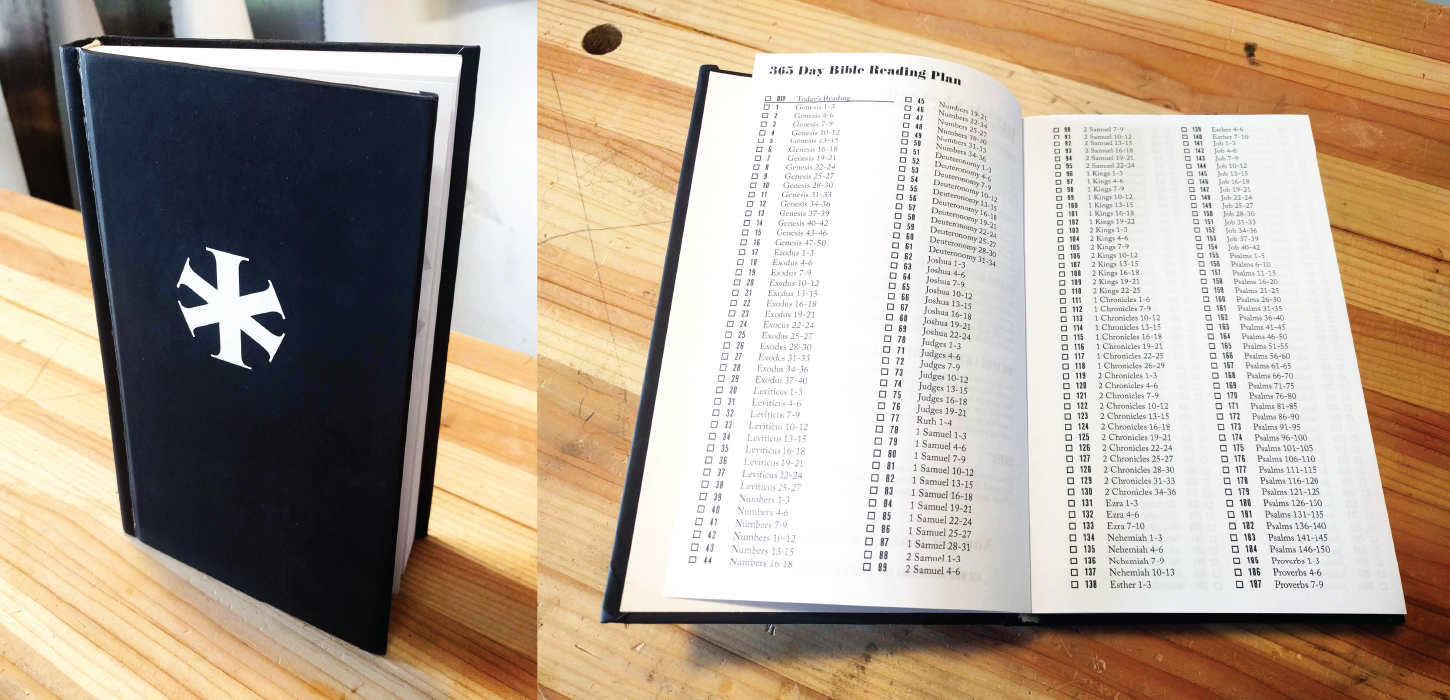 365 Day Bible Reading Plan
☐ DAY Today's Reading
☐ 1 Genesis 1-3
☐ 2 Genesis 4-6
☐ 3 Genesis 7-9
☐ 4 Genesis 10-12
☐ 5 Genesis 13-15
☐ 6 Genesis 16-18
☐ 7 Genesis 19-21
☐ 8 Genesis 22-24
☐ 9 Genesis 25-27
☐ 10 Genesis 28-30
☐ 11 Genesis 31-33
☐ 12 Genesis 34-36
☐ 13 Genesis 37-39
☐ 14 Genesis 40-42
☐ 15 Genesis 43-46
☐ 16 Genesis 47-50
☐ 17 Exodus 1-3
☐ 18 Exodus 4-6
☐ 19 Exodus 7-9
☐ 20 Exodus 10-12
☐ 21 Exodus 13-15
☐ 22 Exodus 16-18
☐ 23 Exodus 19-21
☐ 24 Exodus 22-24
☐ 25 Exodus 25-27
☐ 26 Exodus 28-30
☐ 27 Exodus 31-33
☐ 28 Exodus 34-36
☐ 29 Exodus 37-40
☐ 30 Leviticus 1-3
☐ 31 Leviticus 4-6
☐ 32 Leviticus 7-9
☐ 33 Leviticus 10-12
☐ 34 Leviticus 13-15
☐ 35 Leviticus 16-18
☐ 36 Leviticus 19-21
☐ 37 Leviticus 22-24
☐ 38 Leviticus 25-27
☐ 39 Numbers 1-3
☐ 40 Numbers 4-6
☐ 41 Numbers 7-9
☐ 42 Numbers 10-12
☐ 43 Numbers 13-15
☐ 44 Numbers 16-18
☐ 45 Numbers 19-21
☐ 46 Numbers 22-24
☐ 47 Numbers 25-27
☐ 48 Numbers 28-30
☐ 49 Numbers 31-33
☐ 50 Numbers 34-36
☐ 51 Deuteronomy 1-3
☐ 52 Deuteronomy 4-6
☐ 53 Deuteronomy 7-9
☐ 54 Deuteronomy 10-12
☐ 55 Deuteronomy 13-15
☐ 56 Deuteronomy 16-18
☐ 57 Deuteronomy 19-21
☐ 58 Deuteronomy 22-24
☐ 59 Deuteronomy 25-27
☐ 60 Deuteronomy 28-30
☐ 61 Deuteronomy 31-34
☐ 62 Joshua 1-3
☐ 63 Joshua 4-6
☐ 64 Joshua 7-9
☐ 65 Joshua 10-12
☐ 66 Joshua 13-15
☐ 67 Joshua 16-18
☐ 68 Joshua 19-21
☐ 69 Joshua 22-24
☐ 70 Judges 1-3
☐ 71 Judges 4-6
☐ 72 Judges 7-9
☐ 73 Judges 10-12
☐ 74 Judges 13-15
☐ 75 Judges 16-18
☐ 76 Judges 19-21
☐ 77 Ruth 1-4
☐ 78 1 Samuel 1-3
☐ 79 1 Samuel 4-6
☐ 80 1 Samuel 7-9
☐ 81 1 Samuel 10-12
☐ 82 1 Samuel 13-15
☐ 83 1 Samuel 16-18
☐ 84 1 Samuel 19-21
☐ 85 1 Samuel 22-24
☐ 86 1 Samuel 25-27
☐ 87 1 Samuel 28-31
☐ 88 2 Samuel 1-3
☐ 89 2 Samuel 4-6
☐ 90 2 Samuel 7-9
☐ 91 2 Samuel 10-12
☐ 92 2 Samuel 13-15
☐ 93 2 Samuel 16-18
☐ 94 2 Samuel 19-21
☐ 95 2 Samuel 22-24
☐ 96 1 Kings 1-3
☐ 97 1 Kings 4-6
☐ 98 1 Kings 7-9
☐ 99 1 Kings 10-12
☐ 100 1 Kings 13-15
☐ 101 1 Kings 16-18
☐ 102 1 Kings 19-22
☐ 103 2 Kings 1-3
☐ 104 2 Kings 4-6
☐ 105 2 Kings 7-9
☐ 106 2 Kings 10-12
☐ 107 2 Kings 13-15
☐ 108 2 Kings 16-18
☐ 109 2 Kings 19-21
☐ 110 2 Kings 22-25
☐ 111 1 Chronicles 1-6
☐ 112 1 Chronicles 7-9
☐ 113 1 Chronicles 10-12
☐ 114 1 Chronicles 13-15
☐ 115 1 Chronicles 16-18
☐ 116 1 Chronicles 19-21
☐ 117 1 Chronicles 22-25
☐ 118 1 Chronicles 26-29
☐ 119 2 Chronicles 1-3
☐ 120 2 Chronicles 4-6
☐ 121 2 Chronicles 7-9
☐ 122 2 Chronicles 10-12
☐ 123 2 Chronicles 13-15
☐ 124 2 Chronicles 16-18
☐ 125 2 Chronicles 19-21
☐ 126 2 Chronicles 22-24
☐ 127 2 Chronicles 25-27
☐ 128 2 Chronicles 28-30
☐ 129 2 Chronicles 31-33
☐ 130 2 Chronicles 34-36
☐ 131 Ezra 1-3
☐ 132 Ezra 4-6
☐ 133 Ezra 7-10
☐ 134 Nehemiah 1-3
☐ 135 Nehemiah 4-6
☐ 136 Nehemiah 7-9
☐ 137 Nehemiah 10-13
☐ 138 Esther 1-3
☐ 139 Esther 4-6
☐ 140 Esther 7-10
☐ 141 Job 1-3
☐ 142 Job 4-6
☐ 143 Job 7-9
☐ 144 Job 10-12
☐ 145 Job 13-15
☐ 146 Job 16-18
☐ 147 Job 19-21
☐ 148 Job 22-24
☐ 149 Job 25-27
☐ 150 Job 28-30
☐ 151 Job 31-33
☐ 152 Job 34-36
☐ 153 Job 37-39
☐ 154 Job 40-42
☐ 155 Psalms 1-5
☐ 156 Psalms 6-10
☐ 157 Psalms 11-15
☐ 158 Psalms 16-20
☐ 159 Psalms 21-25
☐ 160 Psalms 26-30
☐ 161 Psalms 31-35
☐ 162 Psalms 36-40
☐ 163 Psalms 41-45
☐ 164 Psalms 46-50
☐ 165 Psalms 51-55
☐ 166 Psalms 56-60
☐ 167 Psalms 61-65
☐ 168 Psalms 66-70
☐ 169 Psalms 71-75
☐ 170 Psalms 76-80
☐ 171 Psalms 81-85
☐ 172 Psalms 86-90
☐ 173 Psalms 91-95
☐ 174 Psalms 96-100
☐ 175 Psalms 101-105
☐ 176 Psalms 106-110
☐ 177 Psalms 111-115
☐ 178 Psalms 116-120
☐ 179 Psalms 121-125
☐ 180 Psalms 126-130
☐ 181 Psalms 131-135
☐ 182 Psalms 136-140
☐ 183 Psalms 141-145
☐ 184 Psalms 146-150
☐ 185 Proverbs 1-3
☐ 186 Proverbs 4-6
☐ 187 Proverbs 7-9